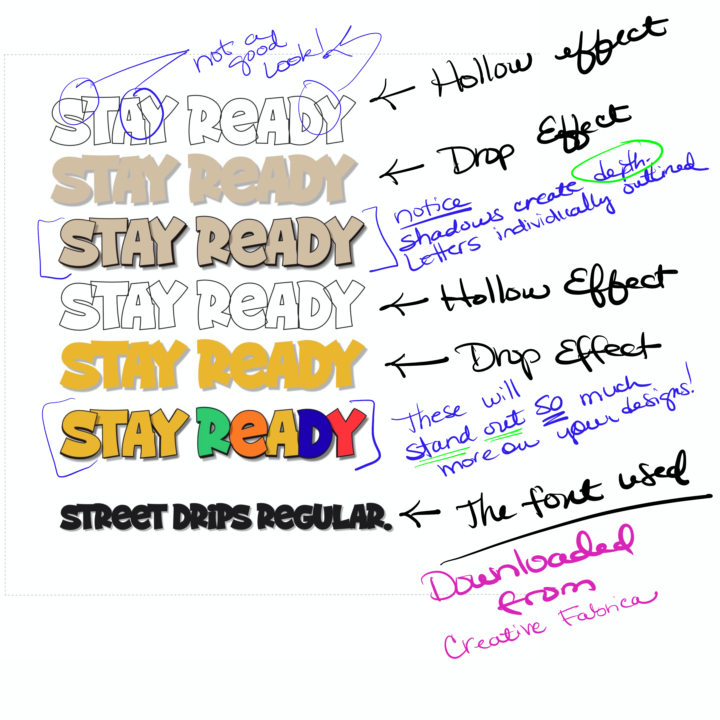 not a
good
look!
STAY READY
← Hollow effect
STAY READY
← Drop Effect
notice
shadows create depth.
Letters individually outlined
STAY READY
STAY READY
← Hollow Effect
STAY READY
← Drop Effect
These will
stand out so much
more on your designs!
STAY READY
STREET DRIPS REGULAR.
← The font used
Downloaded
from
Creative Fabrica